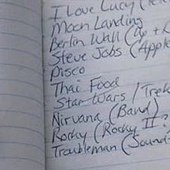 I Love Lucy (
Moon Landing
Berlin Wall (Up +
Steve Jobs (Apple
Disco
Thai Food
Star Wars / Trek
Nirvana (Band)
Rocky (Rocky II?
Troubleman (Sound